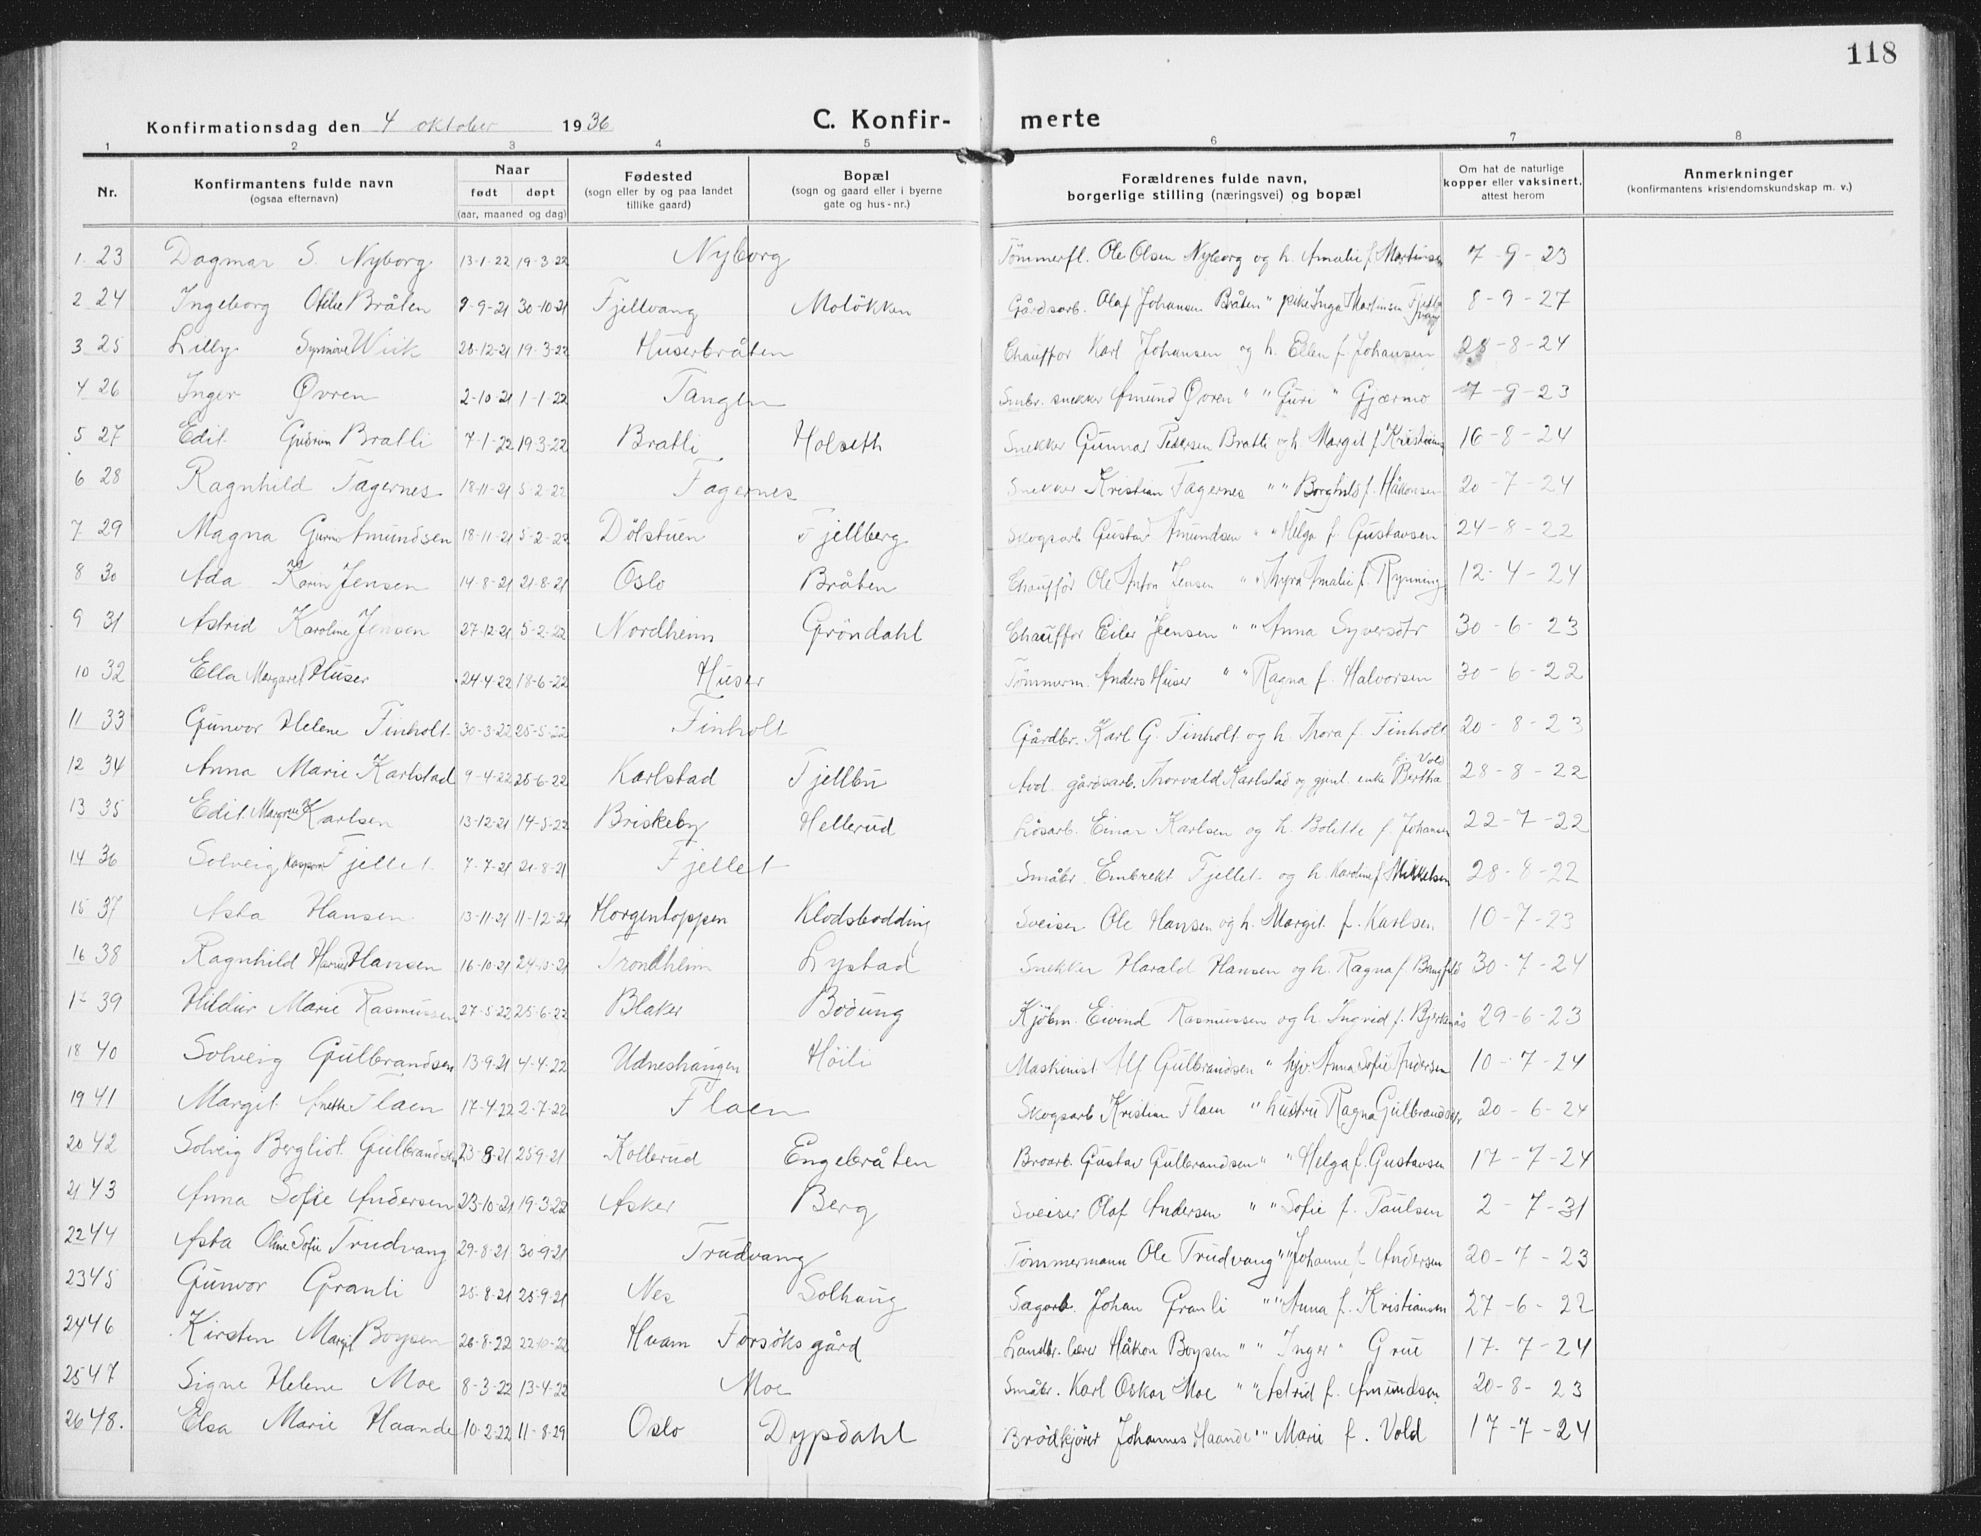 118
Konfirmationsdag den 4 oktober 1936 C. Konfir- merte
1 2 3 4 5 6 7 8
Nr. Konfirmantens fulde navn (ogsaa efternavn) Naar født døpt (aar, maaned og dag) Fødested (sogn eller by og paa landet tillike gaard) Bopæl (sogn og gaard eller i byerne gate og hus-nr.) Forældrenes fulde navn, borgerlige stilling (næringsvei) og bopæl Om hat de naturlige kopper eller vaksinert. attest herom Anmerkninger (konfirmantens kristendomskundskap m. v.)
1. 23 Dagmar S. Nyborg 13-1-22 19-3-22 Nyborg Tömmerfl. Ole Olsen Nyborg og h. Amalie f. Martinsen 7-9-23
2 24 Ingeborg Otilie Bråten 9-9-21 30-10-21 Fjellvang Molökken Gårdsarb. Olaf Johansen Bråten " pike Inga Martinsen Fjellvang 8-9-27
3 25 Lilly Synnöve Wiik 20-12-21 19-3-22 Huserbråten Chauffør Karl Johansen og h. Ellen f. Johansen -8-24
4 26 Inger Øvren 2-10-21 1-1-22 Tangen Småbr. snekker Amund Øvren " " Guri " Gjærmo 7-9-23
5 27 Edit Gudrun Bratli 7-1-22 19-3-22 Bratli Holseth Snekker Gunnar Pedersen Bratli og h. Margit f. 16-8-24
6 28 Ragnhild Fagernes 18-11-21 5-2-22 Fagernes Snekker Kristian Fagernes " " Borghild f. Håkonsen 20-7-24
7 29 Magna Amundsen 18-11-21 5-2-22 Dölstuen Fjellberg Skogsarb Gustav Amundsen " " Helga f. Gustavsen 24-8-22
8 30 Ada Karin Jensen 14-8-21 21-8-21 Oslo Bråten Chauffør Ole Anton Jensen " " Thyra Amalie f. Rynning 12-4-24
9 31 Astrid Karoline Jensen 27-12-21 5-2-22 Nordheim Gröndahl Chauffør Eiler Jensen " " Anna Syversdtr 30-6-23
10 32 Ella Margaret Huser 24-4-22 18-6-22 Huser Tömmerm. Anders Huser " " Ragna f. Halvorsen 30-6-22
11 33 Gunvor Helene Finholt 30-3-22 25-5-22 Finholt Gårdbr. Karl G. Finholt og h. Thora f. Finholt 20-8-23
12 34 Anna Marie Karlstad 9-4-22 25-6-22 Karlstad Fjellbu Avd. gårdsarb. Thorvald Karlstad og gjenl. enke Bertha f. Vold 28-8-22
13 35 Edit Margrete Karlsen 13-12-21 14-5-22 Briskeby Hellerud Lösarb. Einar Karlsen og h. Bolette f. Johansen 22-7-22
14 36 Solveig Fjellet 7-7-21 21-8-21 Fjellet Småbr. Embrekt Fjellet og h. Karoline f. Mikkelsen 28-8-22
15 37 Asta Hansen 13-11-21 11-12-21 Horgentoppen Klodsbodding Sveiser Ole Hansen og h. Margit f. Karlsen 10-7-23
16 38 Ragnhild Hansen 16-10-21 24-10-21 Trondheim Lystad Snekker Harald Hansen og h. Ragna f. 30-7-24
17 39 Hildur Marie Rasmussen 27-5-22 25-6-22 Blaker Bodung Kjöbm. Eivind Rasmussen og h. Ingrid f. Bjerknäs 29-6-23
18 40 Solveig Gulbrandsen 13-9-21 4-4-22 Udneshaugen Höili Maskinist Alf Gulbrandsen " hjv. Anna Sofie Andersen 10-7-24
19 41 Margit Anette Flaen 17-4-22 2-7-22 Flaen Skogsarb Kristian Flaen " hustru Ragna Gulbrandsdtr 20-6-24
20 42 Solveig Bergliot Gulbrandsen 23-8-21 25-9-21 Kollerud Engebråten Broarb. Gustav Gulbrandsen " " Helga f. Gustavsen 17-7-24
21 43 Anna Sofie Andersen 23-10-21 19-3-22 Asker Berg Sveiser Olaf Andersen " " Sofie f. Paulsen 2-7-31
22 44 Asta Oline Sofie Trudvang 29-8-21 30-9-21 Trudvang Tömmermann Ole Trudvang " " Johanne f. Andersen 20-7-23
23 45 Gunvor Granli 25-8-21 25-9-21 Nes Solhaug Sagarb. Johan Granli " " Anna f. Kristiansen 27-6-22
24 46 Kirsten Margit Boysen 26-8-22 22-10-22 Hvam Forsöksgård Landbr. lærer Håkon Boysen " " Inger " Grue 17-7-24
25 47 Signe Helene Moe 8-3-22 13-4-22 Moe Småbr. Karl Oskar Moe " " Astrid f. Amundsen 20-8-23
26 48. Elsa Marie Haande 10-2-22 11-8-29 Oslo Dypdahl Brödkjörer Johannes Haande " " Marie f. Vold 17-7-24